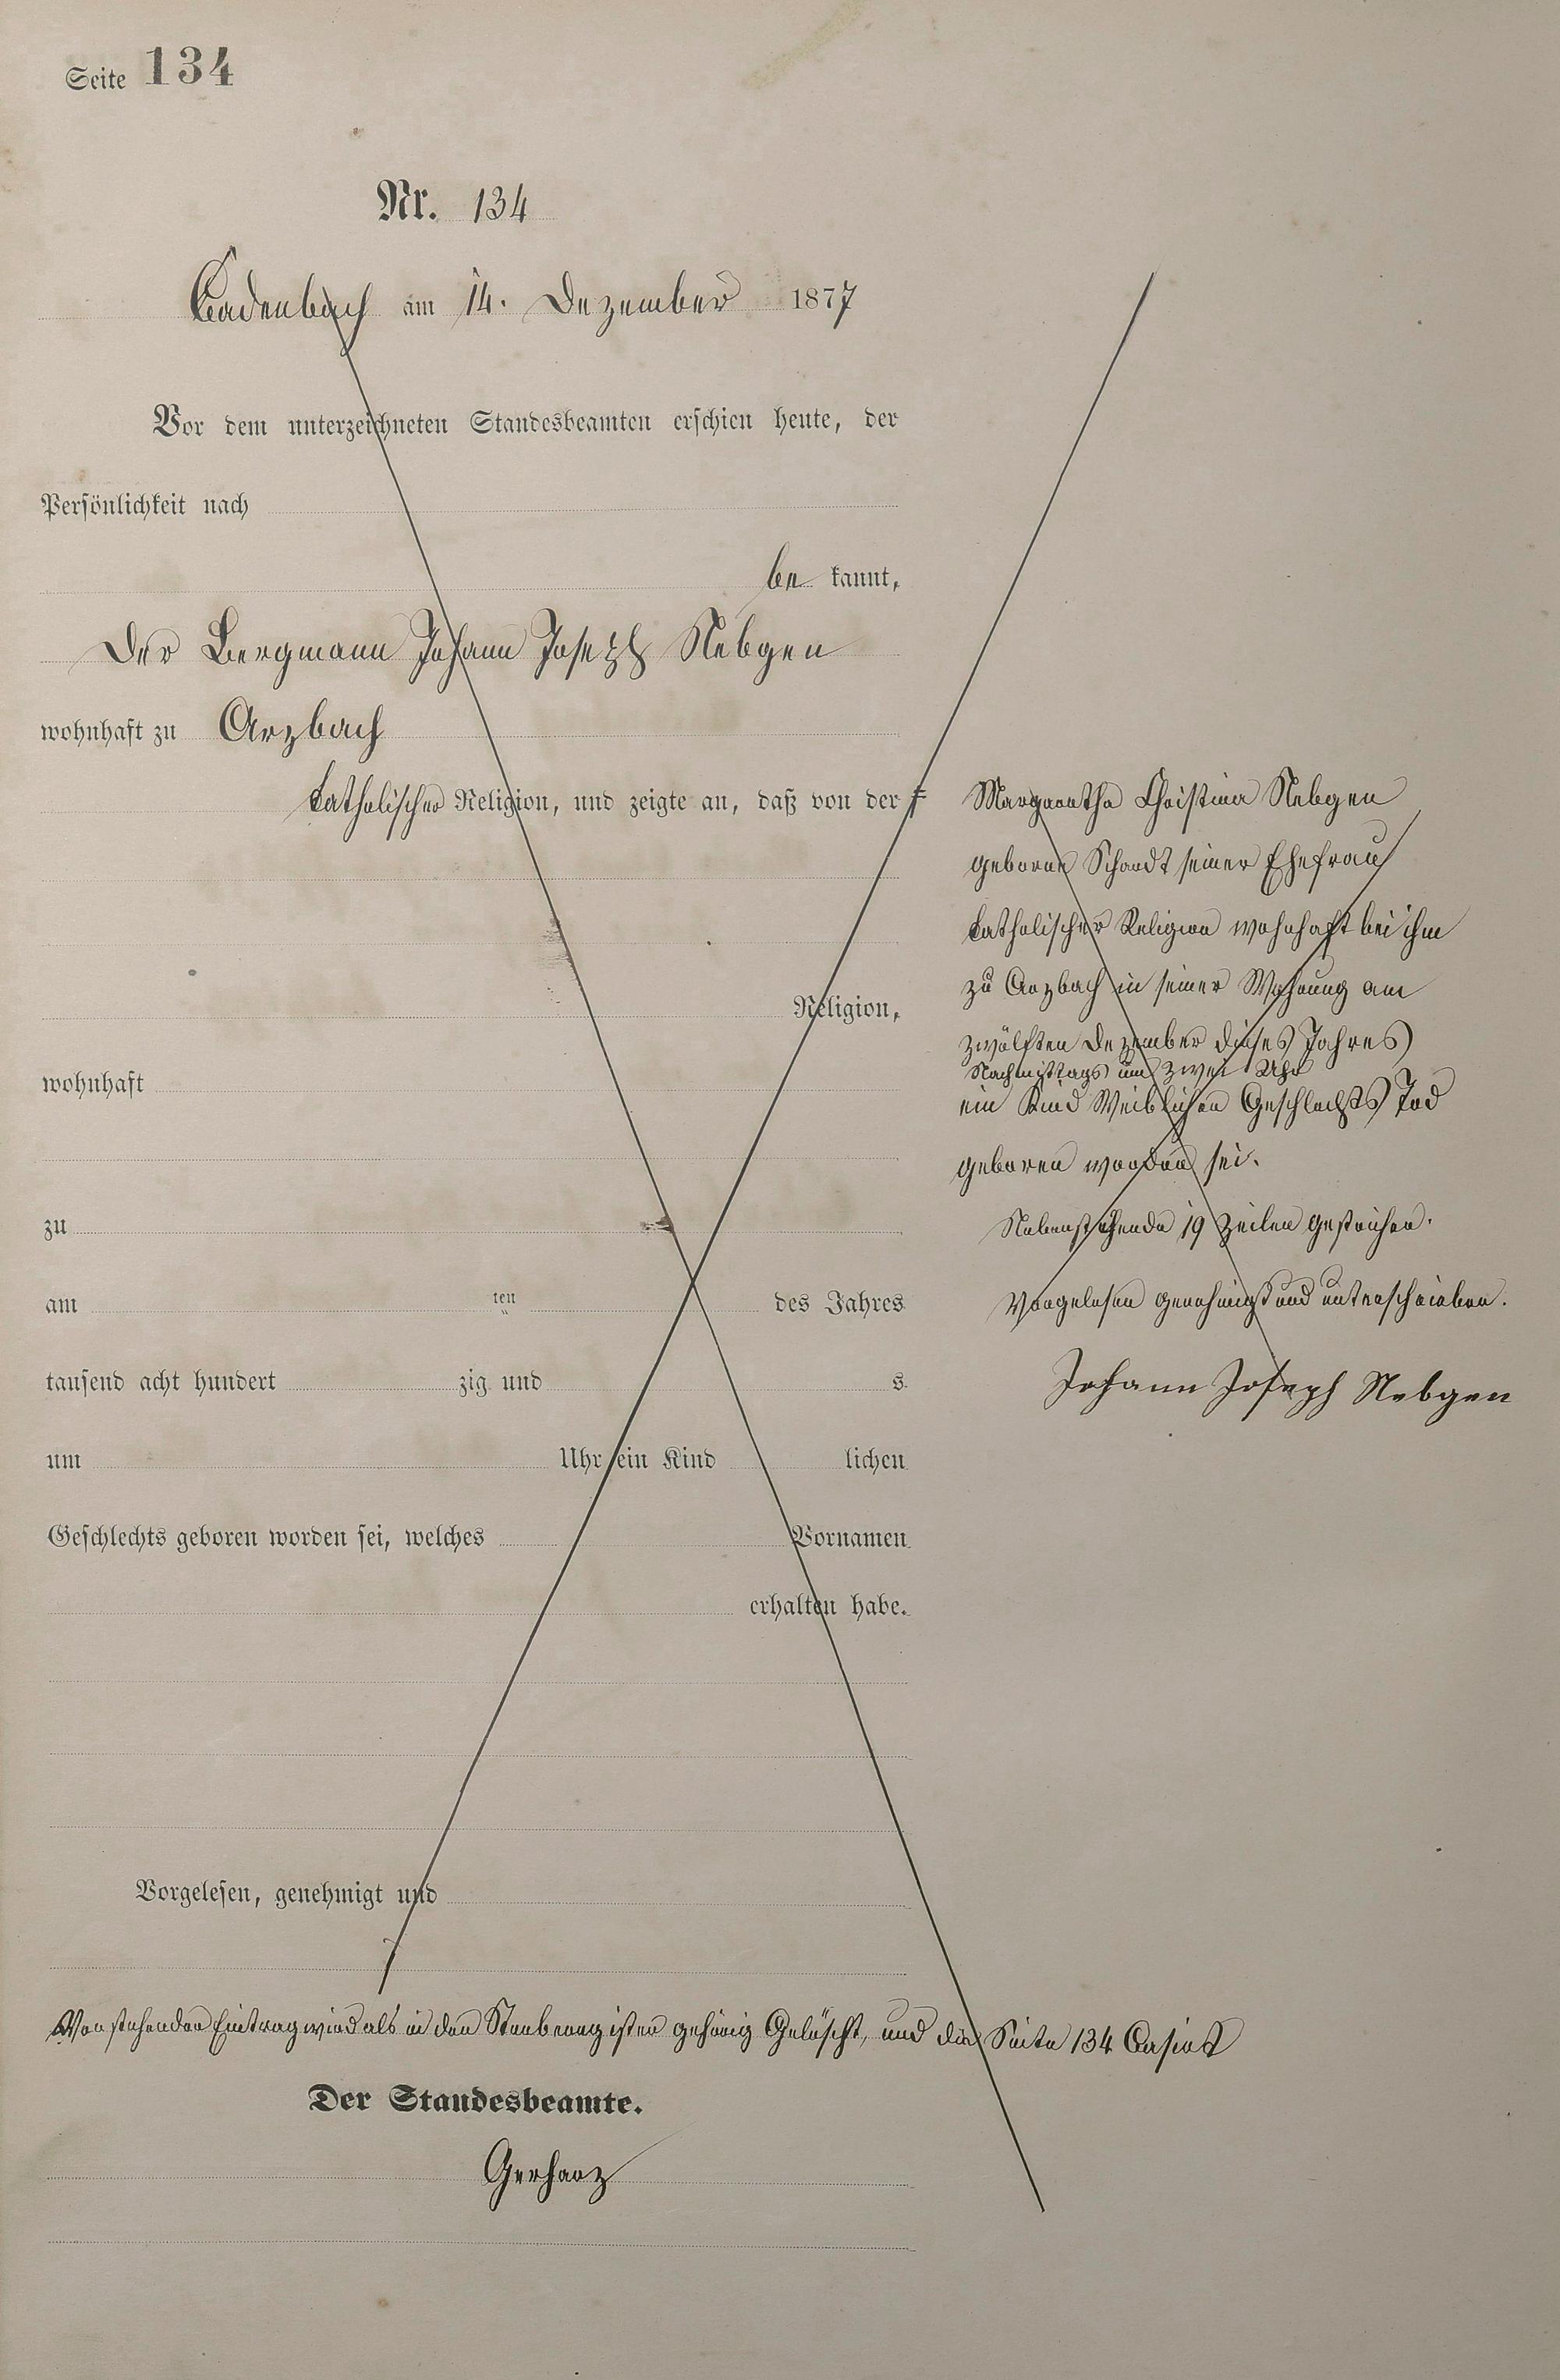 Seite 134
Nr. 134
Cadenbach am 14. Dezember 1877
Vor dem unterzeichneten Standesbeamten erschien heute, der
Persönlichkeit nach
be kannt,
Der Bergmann Johann Joseph Nebgen
wohnhaft zu Arzbach
katholischer Religion, und zeigte an, daß von der F
Religion,
wohnhaft
zu
am ten des Jahres
tausend acht hundert zig und s
um Uhr ein Kind lichen
Geschlechts geboren worden sei, welches Vornamen
erhalten habe.
Vorgelesen, genehmigt und
Margaretha Christina Nebgen
geborne Schardt seiner Ehefrau
katholischer Religion wohnhaft bei ihm
zu Arzbach in seiner Wohnung am
zwölften Dezember dieses Jahres
Nachmittags um zwei Uhr
ein Kind Weiblichen Geschlechts Tod
geboren worden sei.
Nebenstehende 19 Zeilen gestrichen.
Vorgelesen genehmigt und unterschrieben.
Johann Joseph Nebgen
Vorstehender Eintrag wird als in den Sterberegister gehörig Gelöscht, und die Seite 134 Casirt
Der Standesbeamte.
Gerharz